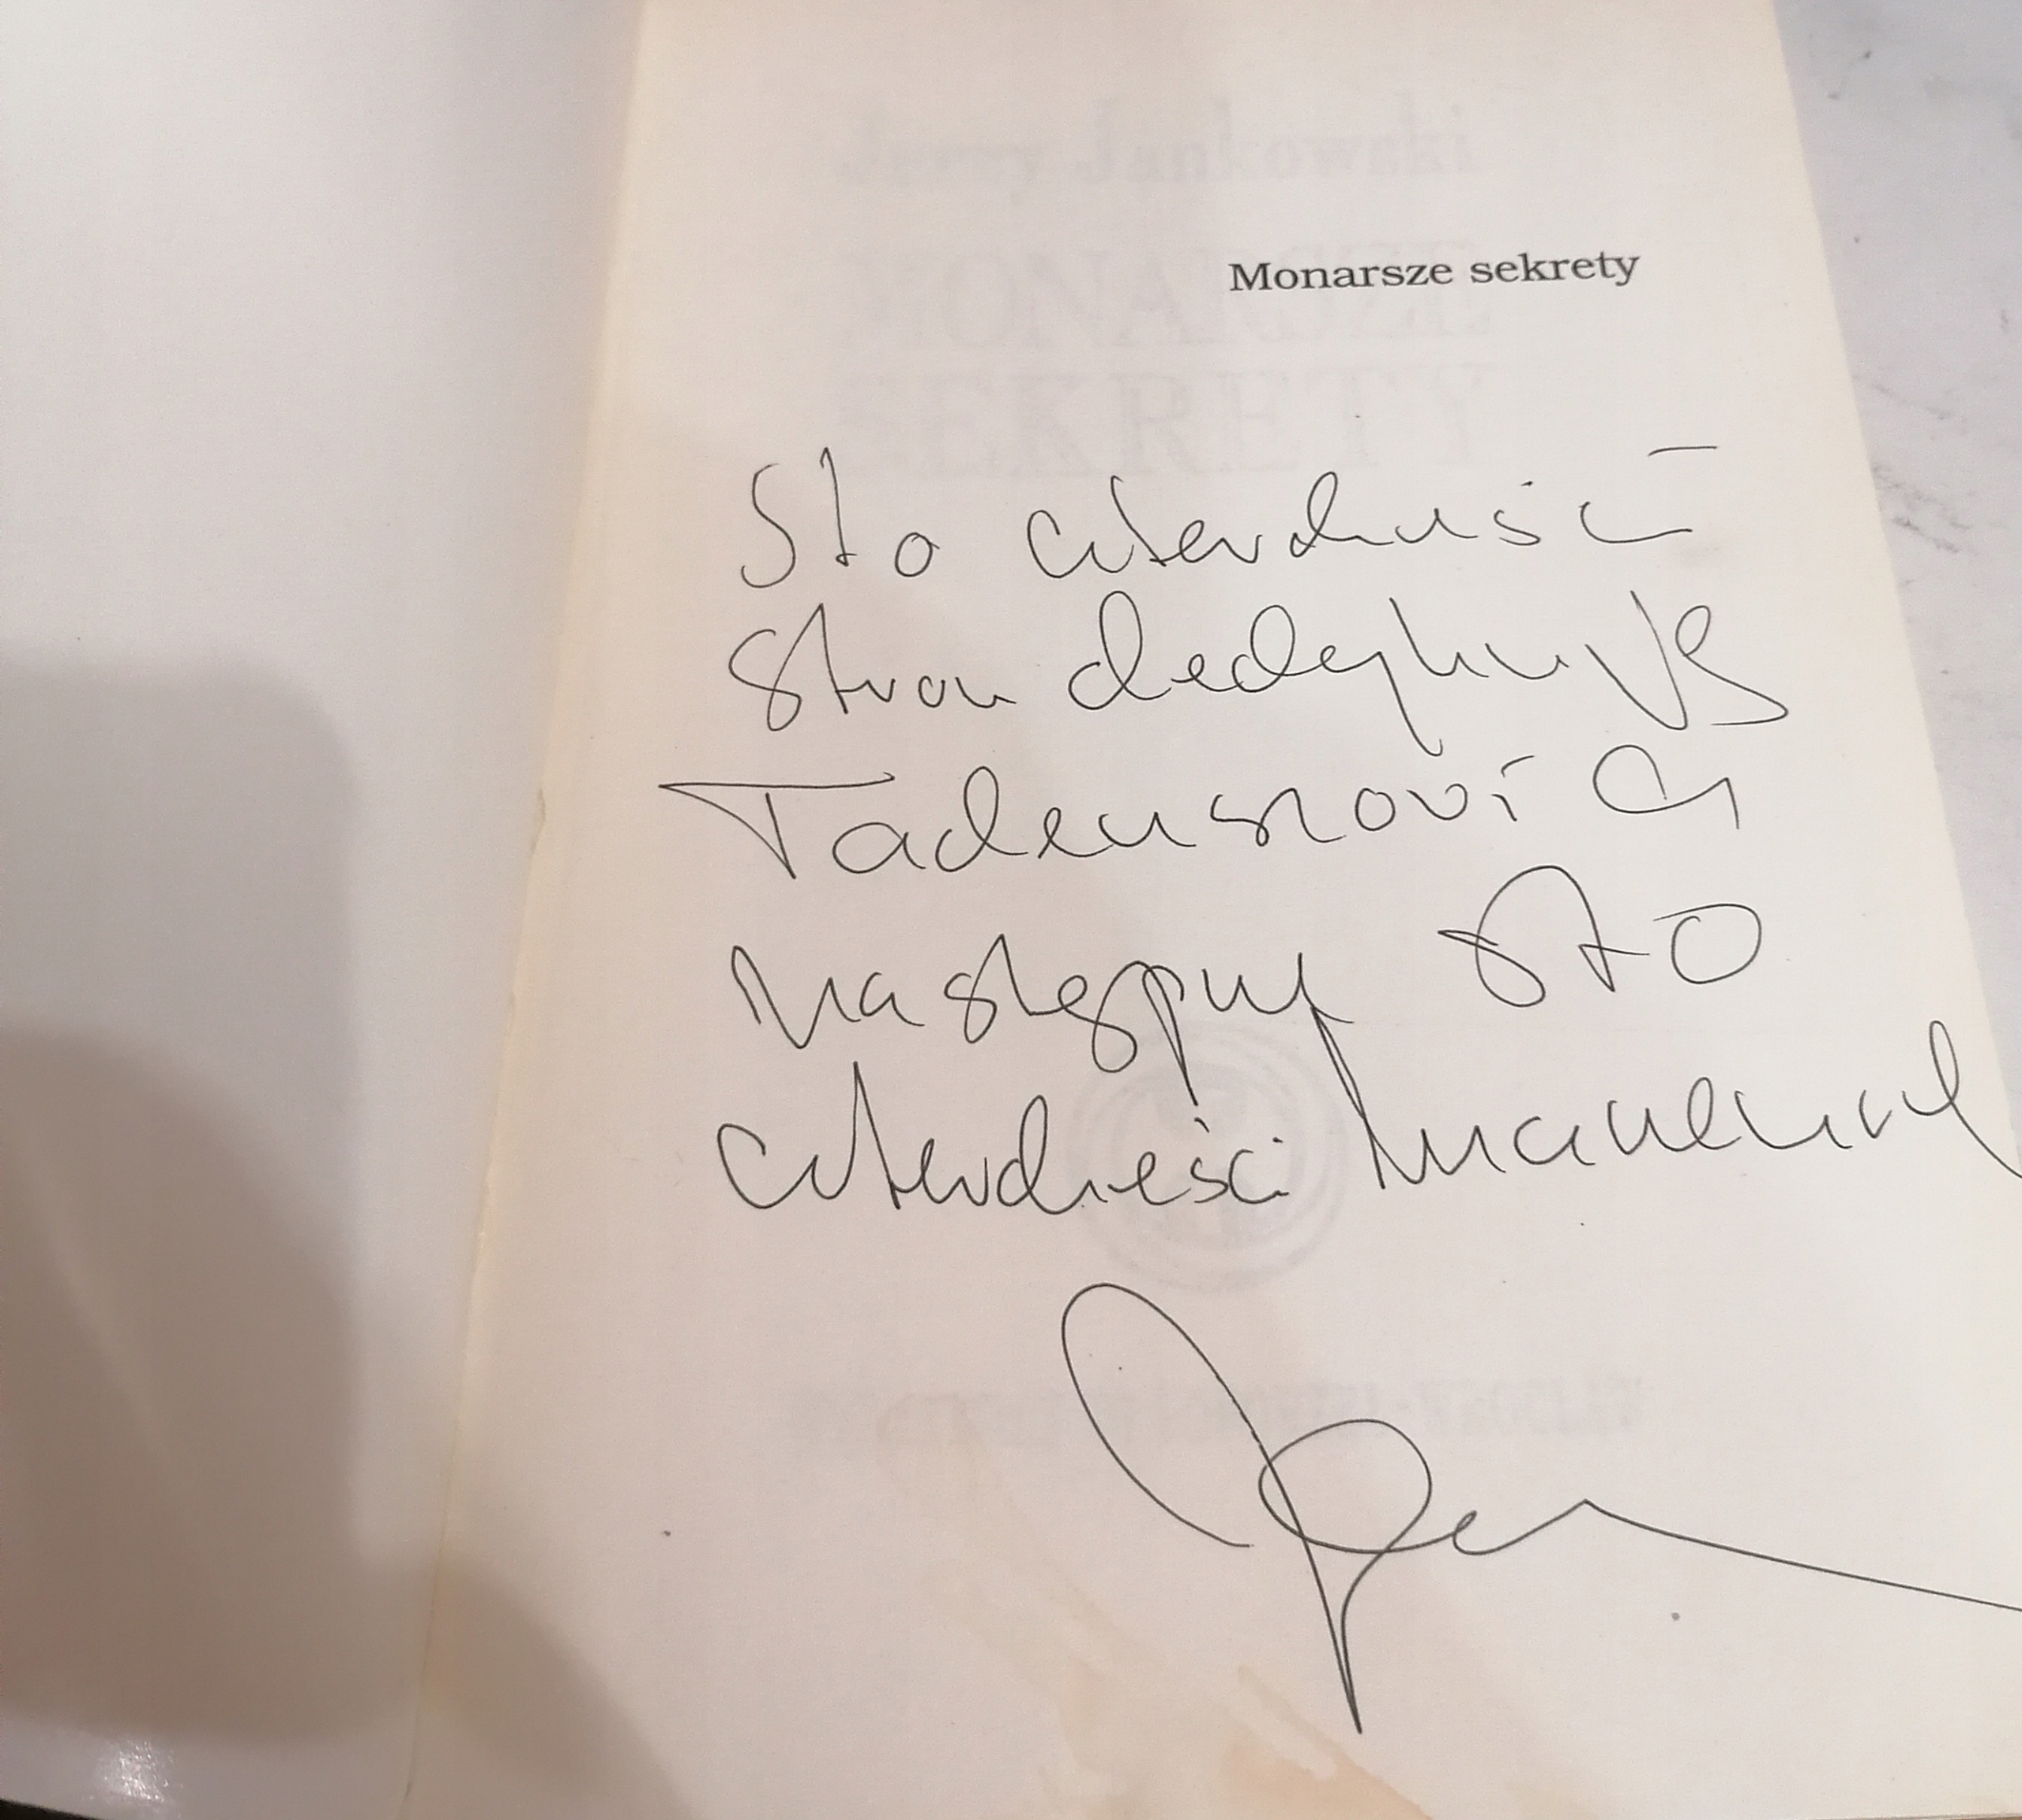 Monarsze sekrety
Sto czterdzieści
stron dedykuję
Tadeuszowi a
następnych sto
czterdzieści